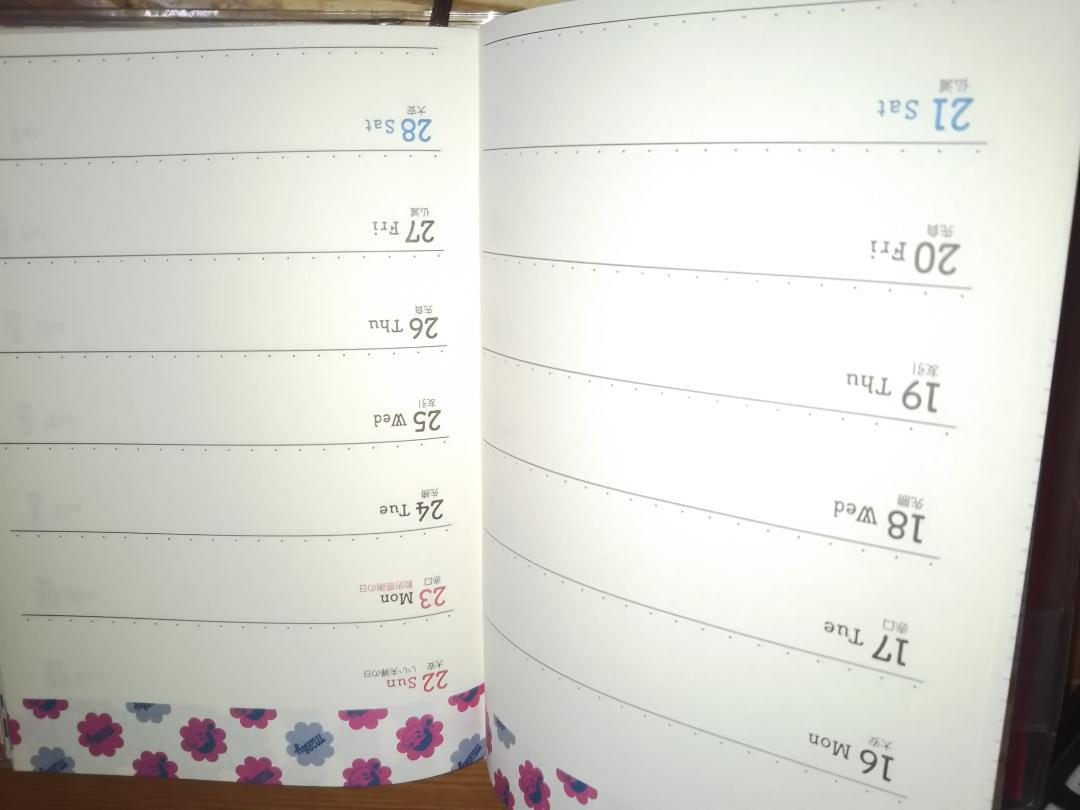 16 Mon
大安
17 Tue
赤口
18 Wed
先勝
19 Thu
友引
20 Fri
先負
21 Sat
仏滅
Milky
22 Sun
大安 いい夫婦の日
23 Mon
赤口 勤労感謝の日
24 Tue
先勝
25 Wed
友引
26 Thu
先負
27 Fri
仏滅
28 Sat
大安